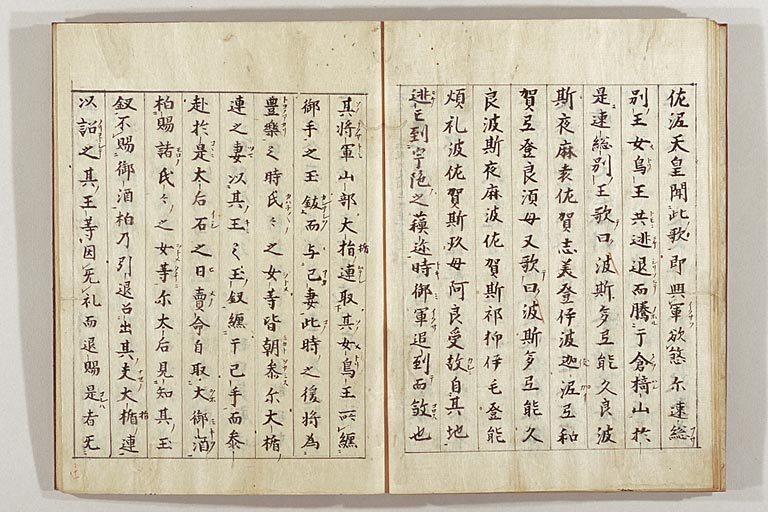 佐泥天皇聞此歌即興軍欲煞尓速総
別王女鳥王共逃退而騰亍倉椅山於
是速総別王歌曰波斯多弖能久良波
斯夜麻袁佐賀志美登伊波迦泥弖和
賀弖登良須母又歌曰波斯多弖能久
良波斯夜麻波佐賀斯祁杼伊毛登能
煩礼波佐賀斯玖母阿良受故自其地
逃亡到宇陁之蘓迩時御軍追到而𠜂也
其将軍山部大楯連取其女鳥王所纏
御手之玉釼而与己妻此時之後将為
豊樂之時氏々之女等皆朝叅尓大楯
連之妻以其王之玉釵纏于己手而叅
赴於是大后石之日賣命自取大御酒
柏賜諸氏々之女等尓大后見知其玉
釵不賜御酒柏乃引退召出其夫大楯連
以詔之其王等因无礼而退賜是者无